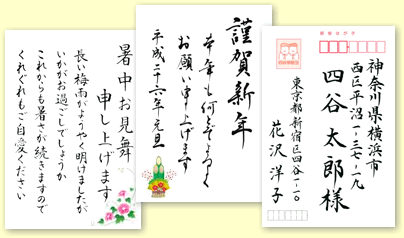 暑中お見舞
申し上げます
長い梅雨がようやく明けましたが
いかがお過ごしでしょうか
これからも暑さが続きますので
くれぐれもご自愛ください
謹賀新年
本年も何とぞよろしく
お願い申し上げます
平成二十六年元旦
神奈川県横浜市
西区平沼一-三七-一九
四谷太郎様
東京都新宿区四谷一-一〇
花沢洋子